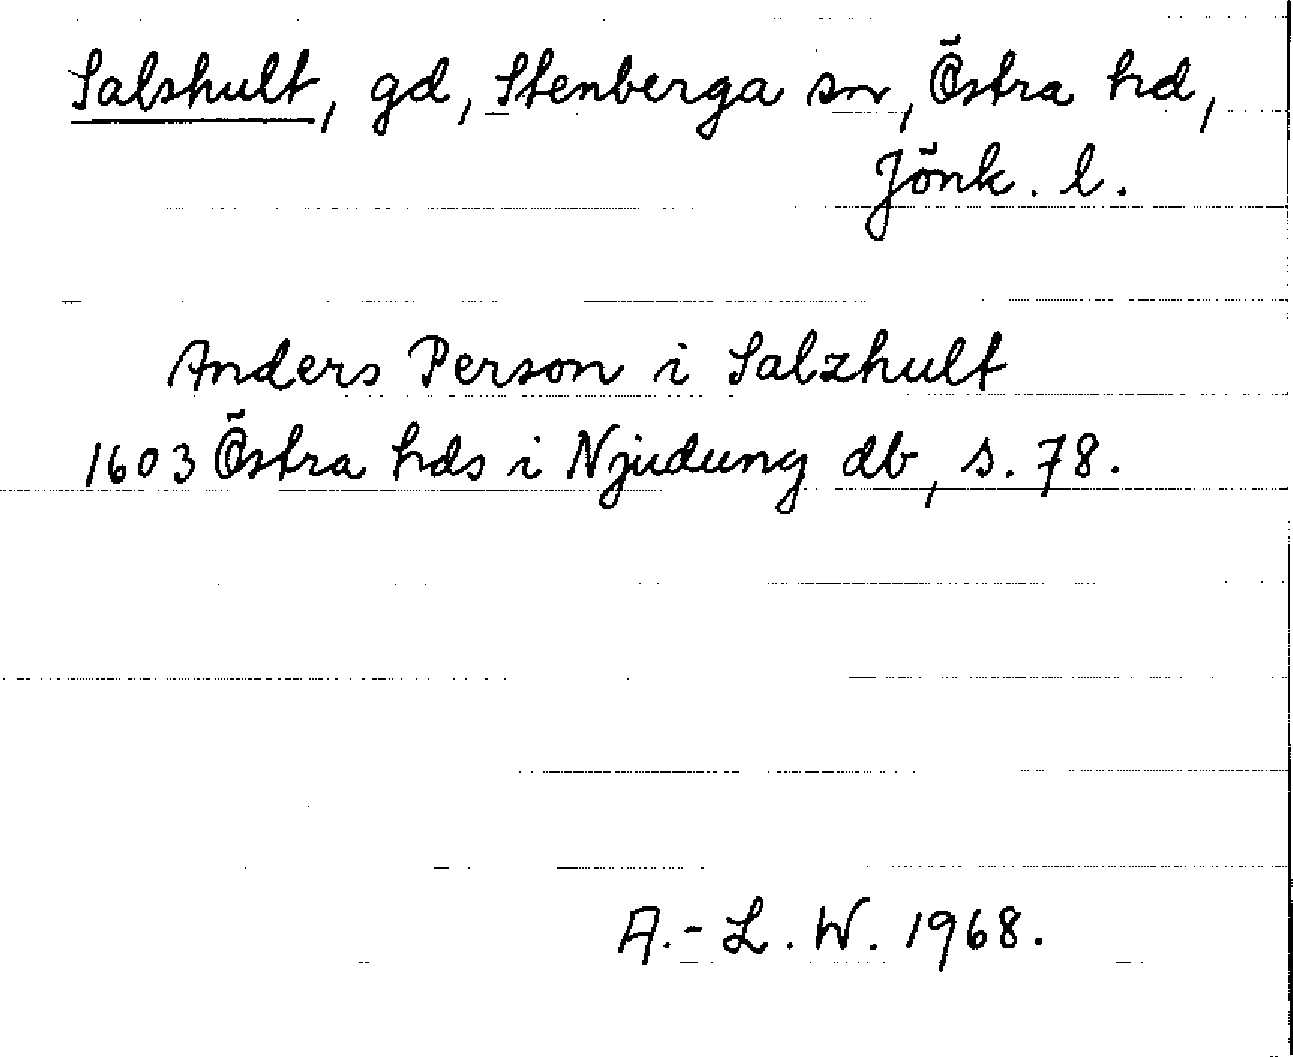 Salshult, gd, Stenberga sn, Östra hd,
Jönk. l.
Anders Person i Salzhult
1603 Östra hds i Njudung db, s. 78.
A.-L. W. 1968.